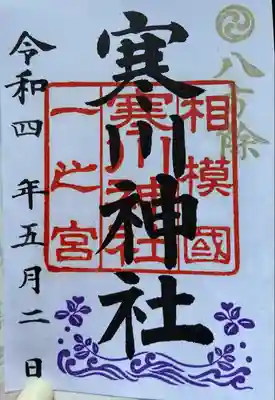 八方除
相模國
寒川神社
一之宮
寒川神社
令和四年五月二日